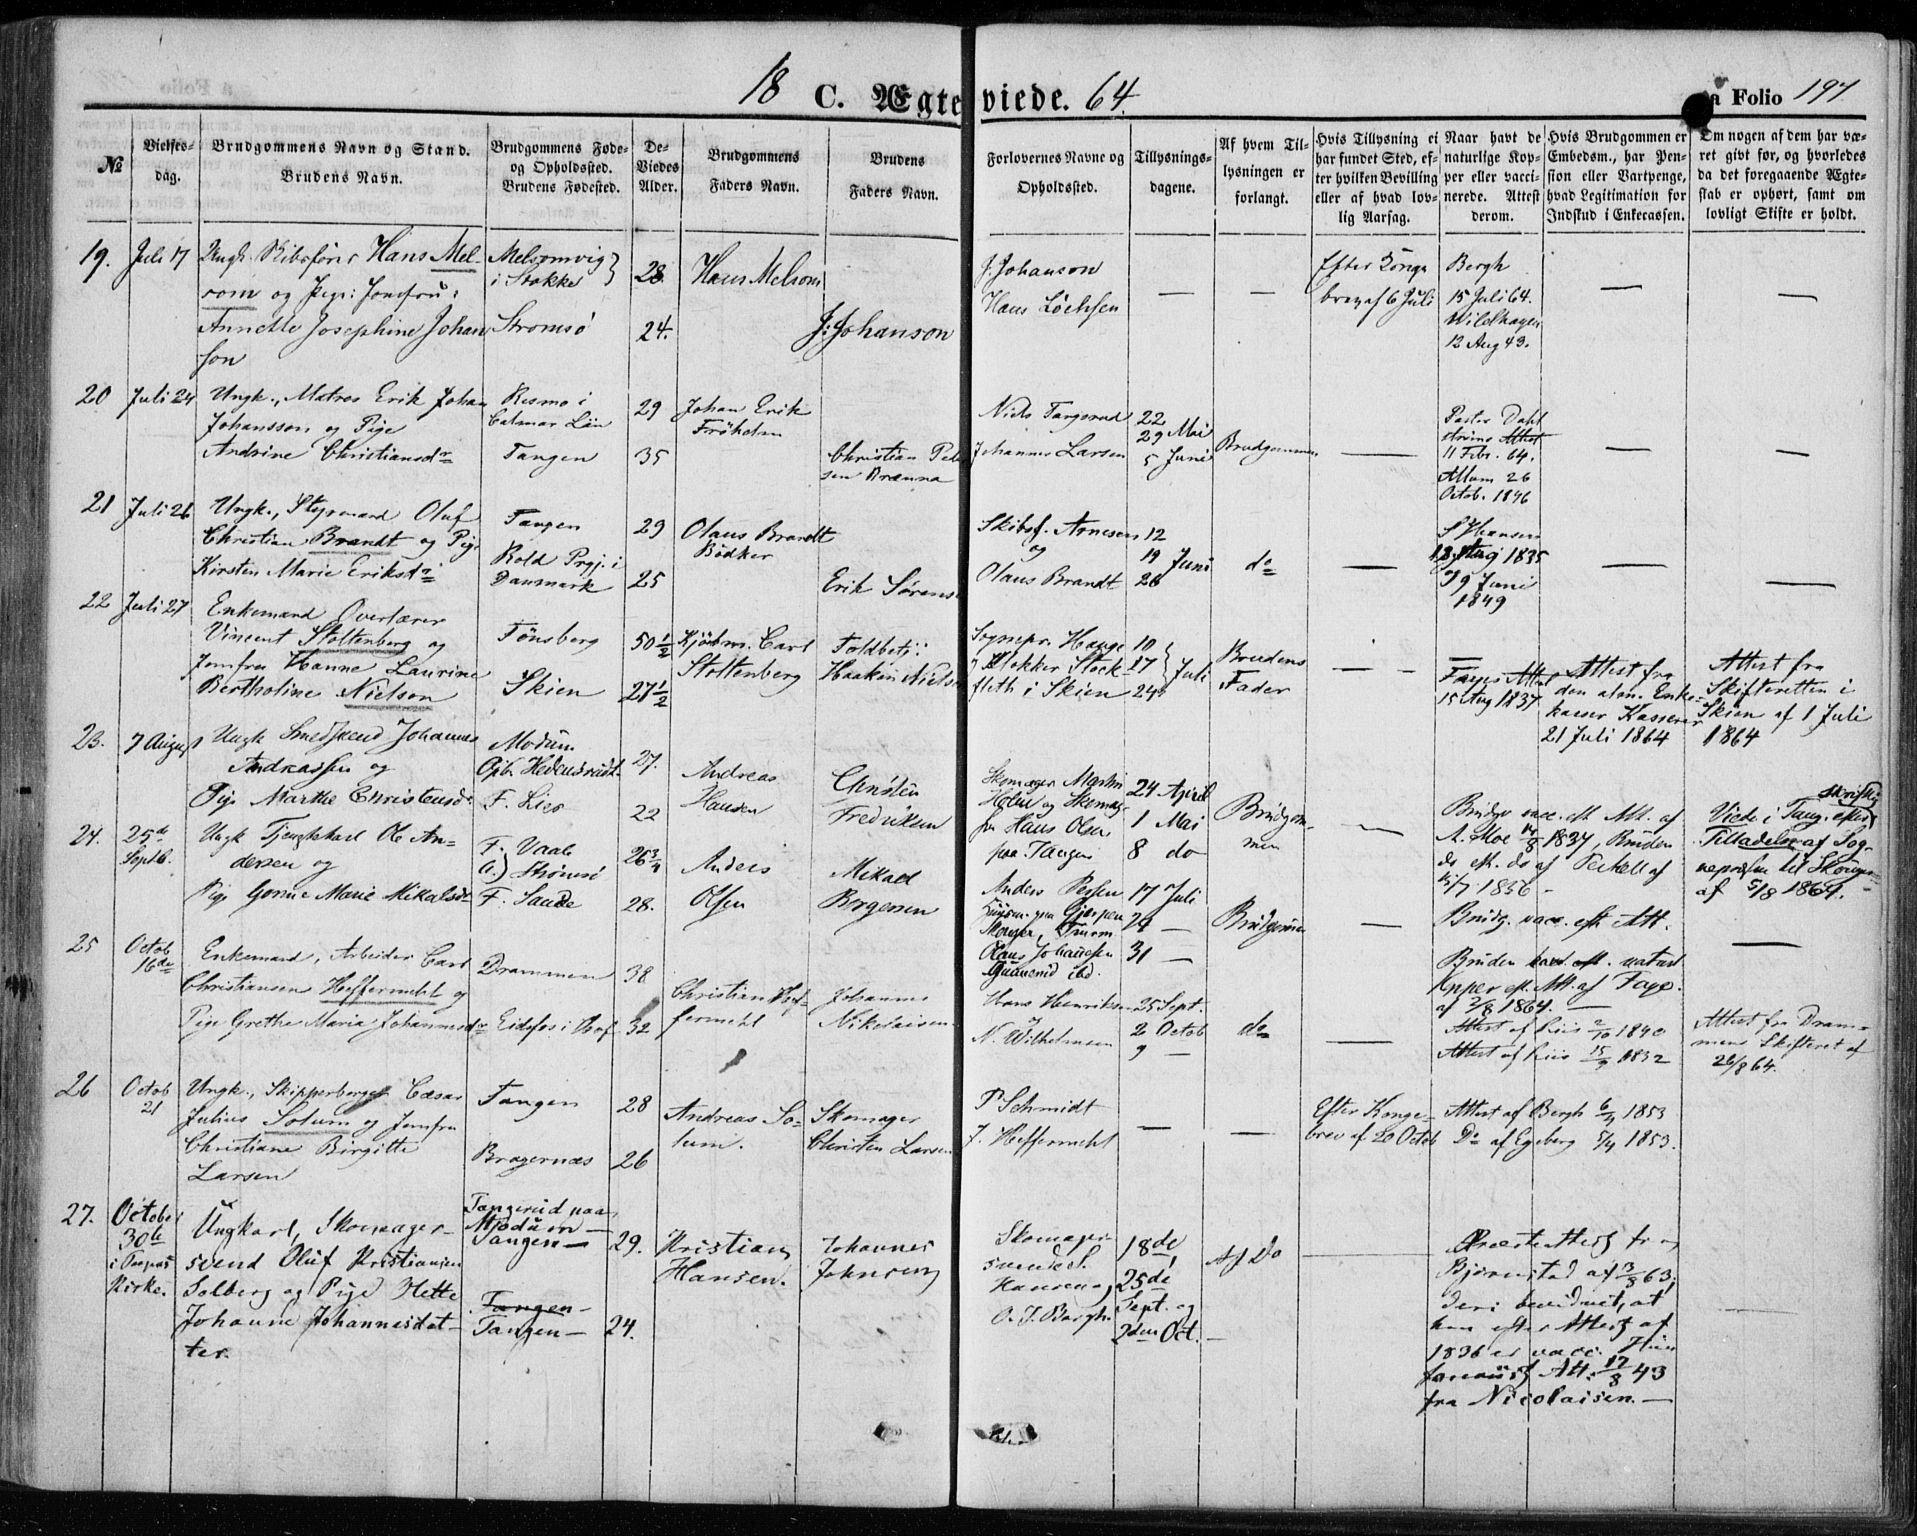 18 C. Ægteviede. 64.
a Folio 197
№
Vielses-
dag.
Brudgommens Navn og Stand.
Brudens Navn.
Brudgommens Føde-
og Opholdssted.
Brudens Fødested.
De-
Viedes
Alder.
Brudgommens
Faders Navn.
Brudens
Faders Navn.
Forlovernes Navne og
Opholdssted.
Tillysnings-
dagene.
Af hvem Til-
lysningen er
forlangt.
Hvis Tillysning ei
har fundet Sted, ef-
ter hvilken Bevilling
eller af hvad lov-
lig Aarsag.
Naar havt de
naturlige Kop-
per eller vacci-
nerede. Attest
derom.
Hvis Brudgommen er
Embedsm., har Pen-
sion eller Vartpenge,
hvad Legitimation for
Indskud i Enkecassen.
Om nogen af dem har væ-
ret givt før, og hvorledes
da det foregaaende Ægte-
skab er ophørt, samt om
lovligt Skifte er holdt.
19. Juli 17
Ungk. Skibsfører Hans Mel-
som og Pige: Jomfru:
Annette Josephine Johan
son
Melsomvig
i Stokke
Stromsø
28.
24.
Hans Melsom
J. Johanson
J. Johanson
Hans
— —
Efter Konge
brev af 6 Juli
Bergh
15 Juli 64.
Wildhagen
12 Aug 43.
— —
20 Juli 24
Ungk., Matros Erik Johan
Johansson og Pige
Andrine Christiansdr
Resmo i
Calmar Län
Tangen
29
35
Johan Erik
Christian Peter
sen
Niels
Johannes Larsen
22
29 Mai
5 Juni
Brudgommen
—
Pastor Dahl
ströms Attest
11 Febr. 64.
26
Octob. 1846
— —
21 Juli 26
Ungk., Styrmand Oluf
Christian Brandt og Pige
Kirsten Marie Eriksdr
Tangen
Rold Prgj. i
Danmark
29
25
Olaus Brandt
Bødker
Erik Sørens
Skibsf. Arnesen
og
Olaus Brandt
12
19 Juni
26
do
—
Hansen
Aug 1835
9 Juni
1849
— —
22 Juli 27
Enkemand Overlærer
Vincent Stoltenberg og
Jomfru Hanne Laurine
Bertholine Nielson
Tønsberg
Skien
50½
27½
Kjøbm. Carl
Stoltenberg
Toldbetj:
Haakon Niels
Sognepr. Hauge
Klokker Stock-
fleth i Skien
10
17 Juli
24
Brudens
Fader
— —
Fayes Attest
15 Aug 1837
Attest fra
den alm. Enke-
kasses Kasserer
21 Juli 1864
Attest fra
Skifteretten i
Skien af 1 Juli
1864
23. 7 August
Ungk Smedsvend Johannes
Andreassen og
Pige Marthe Christensd.
Modum
Opb.
F. Lier
27.
22
Andreas
Hansen
Christen
Fredriksen
Skomager Martin
Holm og Skomag-
Hans Olsen
paa Tangen
24 April
1 Mai
8 do
Brudgom-
men
—
Brudg. vacc. eft Att. af
A. Moe 14/8 1837, Bruden
do eft. do af
1836 -
Viede i Tang. efter skriftlig
Tilladelse af Sog-
nepræsten til Skoger
af 5/8 1864.
24. 25de
Septb.
Ungk Tjenestekarl Ole An-
dersen og
Pige Gorine Marie Mikalsdr
F. Vaale
O.) Strömsö
F. Sande
26¾
28.
Anders
Olsen
Mikael
Borgersen
Anders
Skoger,
Olaus Johannesen
ibd.
17 Juli
24 —
31 —
Brudgommen
—
Brudg. vacc. eft. Att.
Bruden havt naturl
Kopper eft. Att. af Faye.
af 2/8 1864. —
—
25 Octob
16de
Enkemand, Arbeider Carl
Christiansen Heffermehl og
Pige Grethe Maria Johannesdr
Drammen
Eidsfos i Hof
38
32
Christian Hef-
fermehl
Johannes
Nikolaisen
Hans Henriksen
N. Wilhelmsen
25 Sept.
2 Octob
9 —
do
—
Attest af Liis 2/10 1840
Attest af Liis 15/9 1832
Attest fra Dram-
mens Skifteret af
26/8 64.
26 Octob
21
Ungk., Skipperborger Cæsar
Julius Solum og Jomfru
Christiane Birgitte
Larsen
Tangen
Bragernæs
28
26
Andreas So-
lum.
Skomager
Christen Larsen
P Schmidt
J. Heffermehl
— —
Efter Konge-
brev af 20 Octob
Attest af Bergh 6/9 1853
Do af Egeberg 1853.
27. October
30te
i Tangens
Kirke.
Ungkarl, Skomager-
svend Oluf Kristiansen
Solberg og Pige Mette
Johanne Johannesdat-
ter.
Tangerud paa
Modum
Tangen —
Tangen -
Tangen —
29.
24.
Kristian
Hansen.
Johannes
Johnsen
Skomager-
svend S.
Hansen og
O. J. Bergh.
18de
25de
Sept. og
2den Oct. —
Af Do
—
Præsteattest fra
Bjørnstad af 3/8 63,
deri bevidnet, at
han efter Attest af
1836 er vacc. Hun
Att. 17/8 43
fra Nicolaisen. —